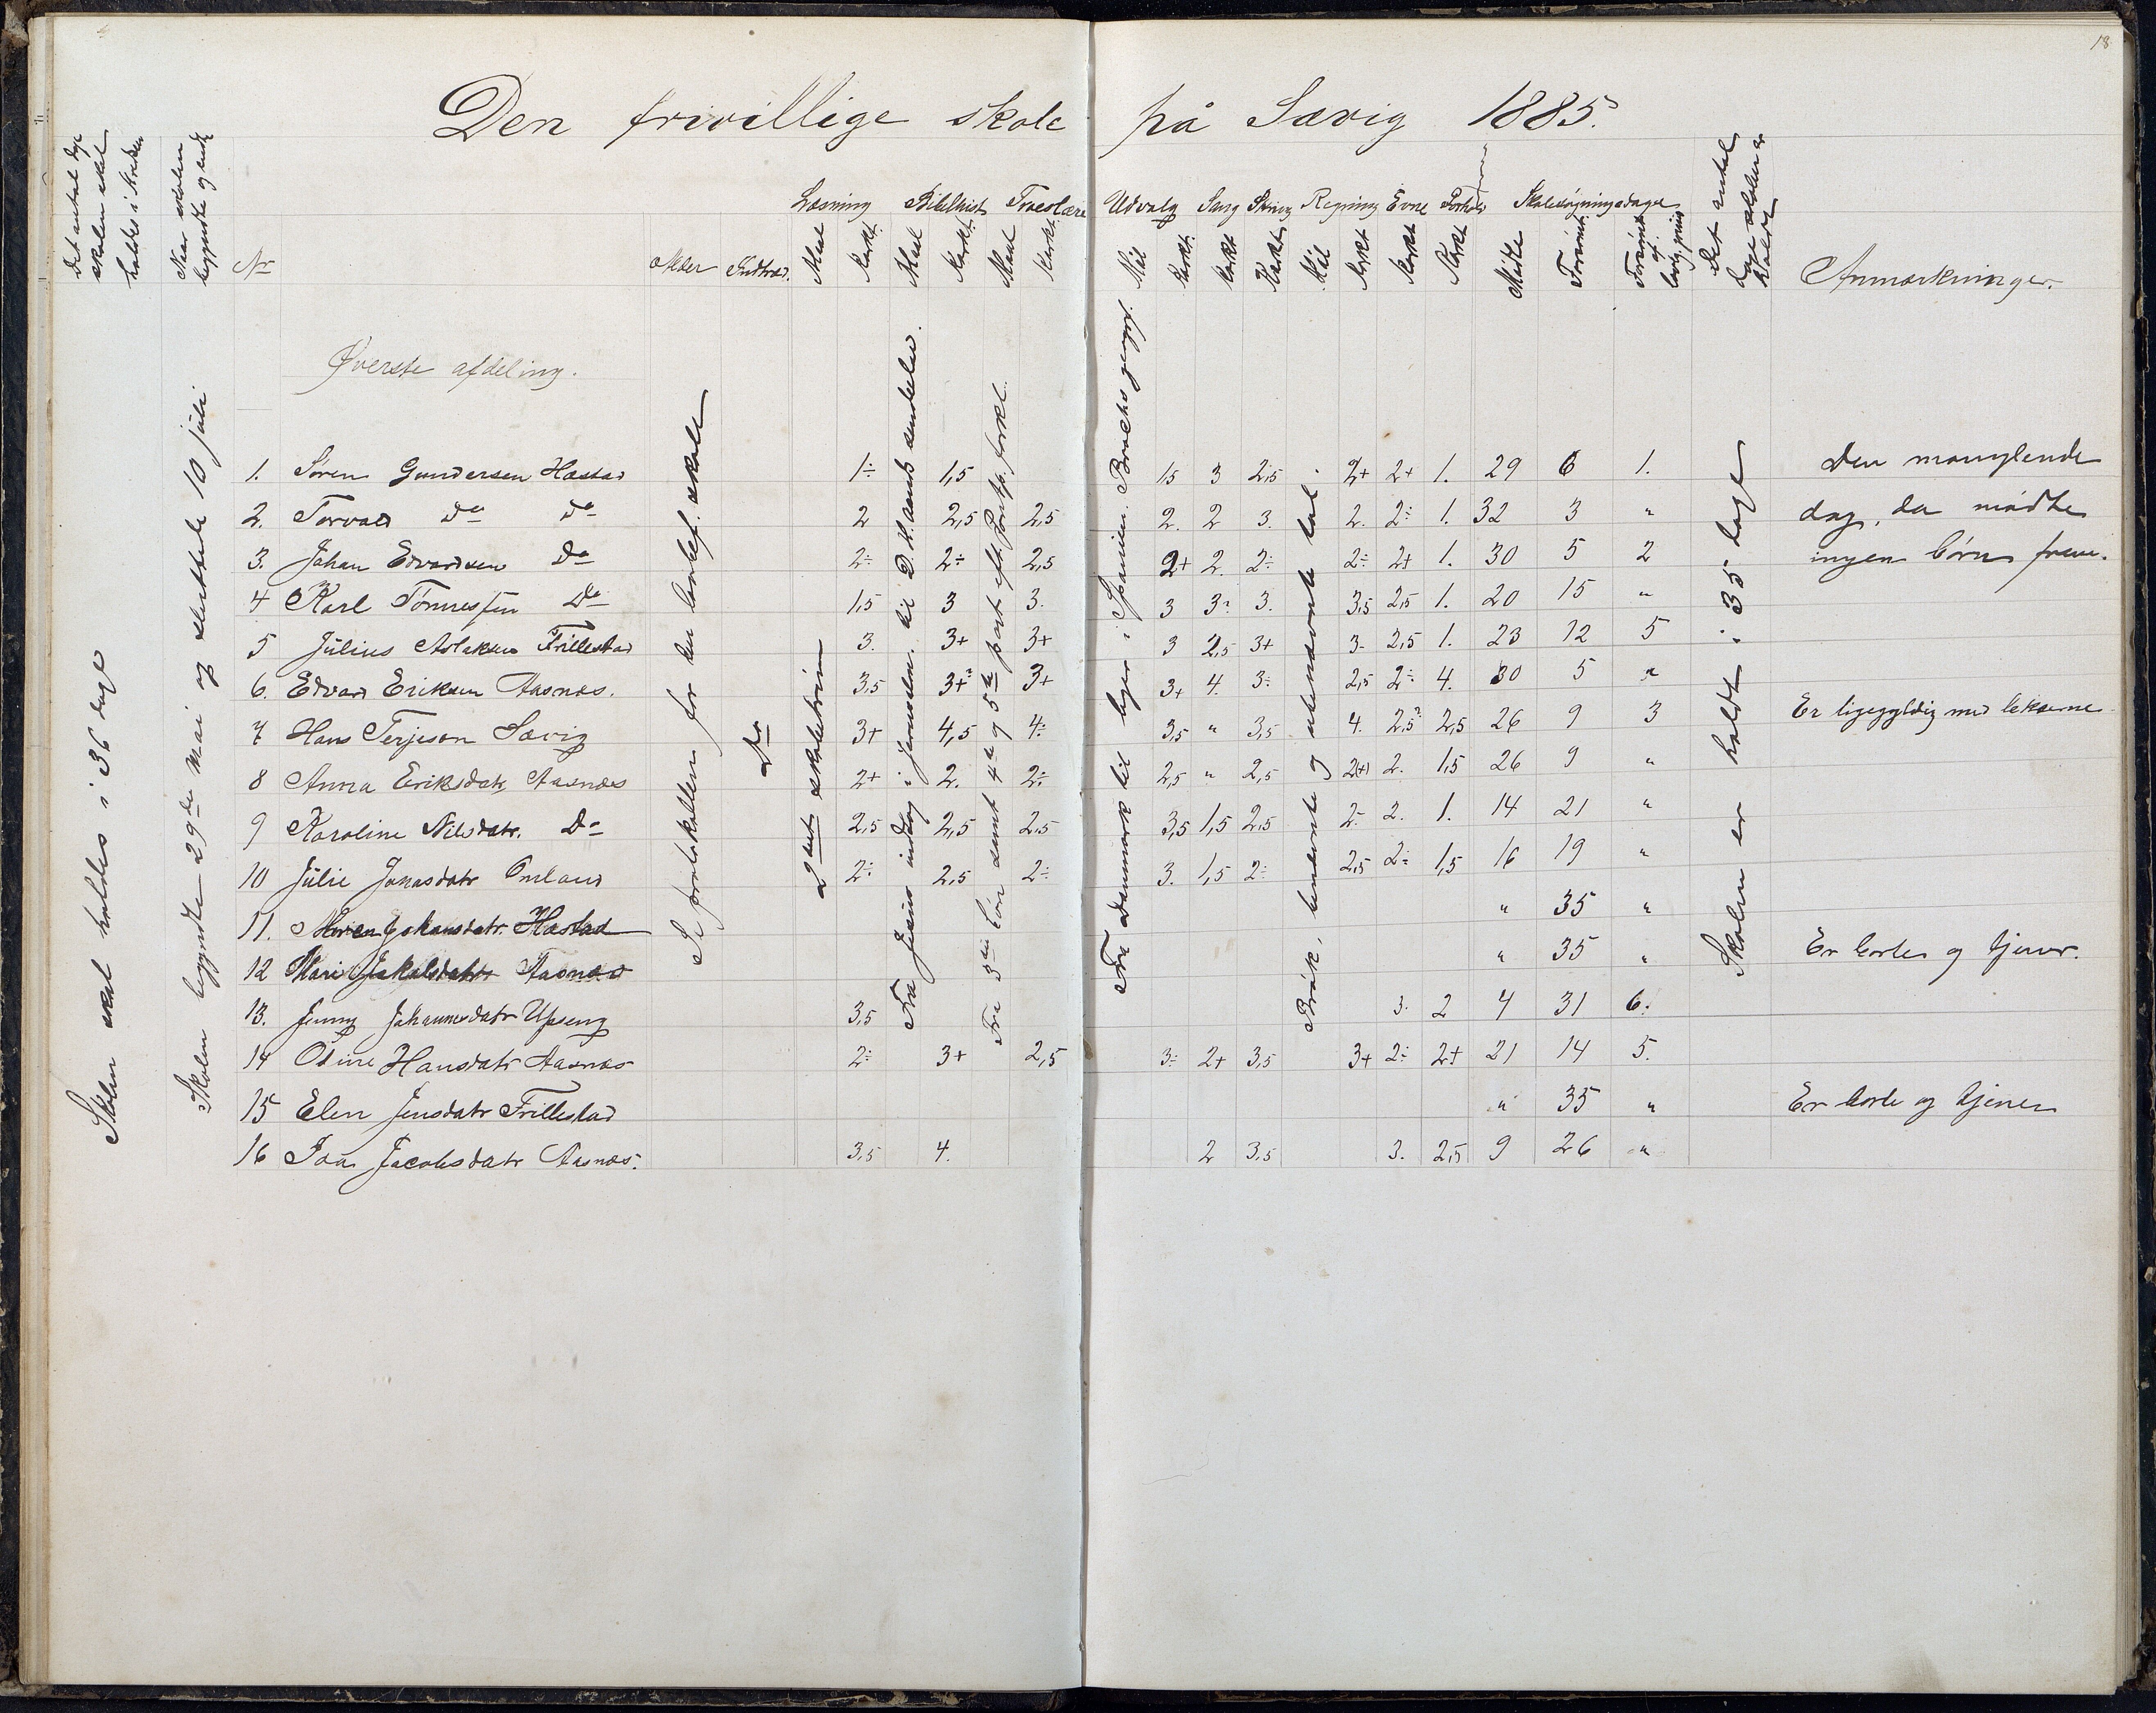 18
Den frivillige skole på Sævig 1885.
Det antal dage skolen skal holdes i kredsen
Naar skolen begyndte og endte
No
Alder Indtræd.
Læsning Bibelhist. Troeslære
Maal Karkt. Maal Karkt. Maal Karkt.
Udvalg Sang Skriv. Regning Evne Forhold Skolesøgningsdage
Mål Karkt. Karkt Karkt. Mål Karkt Karkt Karkt Mødte Forsømt Forsømt af lovlig grund
Det antal dage skolen er holdt
Anmærkninger.
Øverste afdeling.
Skolen skal holdes i 36 dage
Skolen begyndte 29de Mai og sluttede 10 juli
Se protokollen for den lovbef. skole
Do
2det skoletrin
Fra Jesus indtog i Jerusalem til D. H. aands sendelse.
Fra 3die bøn samt 4de og 5te part eft. Pontp. forkl.
Fra Danmark til byer i Spanien. Brochs geogrf.
Brøk, benævnte og ubenævnte tal.
Skolen er holdt i 35 dage
1. Søren Gundersen Hæstad 1÷ 1,5 15 3 2,5 2+ 2+ 1. 29 6 1. Den manglende
2. Torvald Do Do 2 2,5 2,5 2. 2 3. 2. 2÷ 1. 32 3 " dag, da mødte
3. Johan Edvardsen Do 2÷ 2÷ 2,5 2+ 2. 2÷ 2÷ 2+ 1. 30 5 2 ingen børn frem.
4 Karl Tønnessen Do 1,5 3 3. 3 3? 3. 3,5 2,5 1. 20 15 "
5 Julius Aslaksen Frillestad 3. 3+ 3+ 3 2,5 3+ 3- 2,5 1. 23 12 5
6. Edvard Eriksen Aasnæs. 3,5 3+? 3+ 3+ 4. 3÷ 2,5 2÷ 4. 30 5 "
7 Hans Terjeson Sævig 3+ 4,5 4÷ 3,5 " 3,5 4. 2,5? 2,5 26 9 3 Er ligegyldig med lekserne
8 Anna Eriksdatr, Aasnæs 2+ 2. 2÷ 2,5 " 2,5 2(+) 2. 1,5 26 9 "
9 Karoline Nilsdatr. Do 2,5 2,5 2,5 3,5 1,5 2,5 2- 2. 1. 14 21 "
10 Julie Jonasdatr Omland 2÷ 2,5 2÷ 3. 1,5 2÷ 2,5 2÷ 1,5 16 19 "
11. Maren Johansdatr. Hæstad " 35 "
12 Mari Jakobsdatr Aasnæs " 35 " Er borte og tjener.
13. Jenny Johannesdatr Upseng 3,5 3. 2 4 31 6.
14 Oline Hansdatr Aasnæs 2÷ 3+ 2,5 3÷ 2+ 3,5 3+ 2÷ 2+ 21 14 5.
15 Elen Jensdatr Frillestad " 35 " Er borte og tjener
16 Ida Jacobsdatr Aasnæs. 3,5 4. 2 3,5 3. 2,5 9 26 "